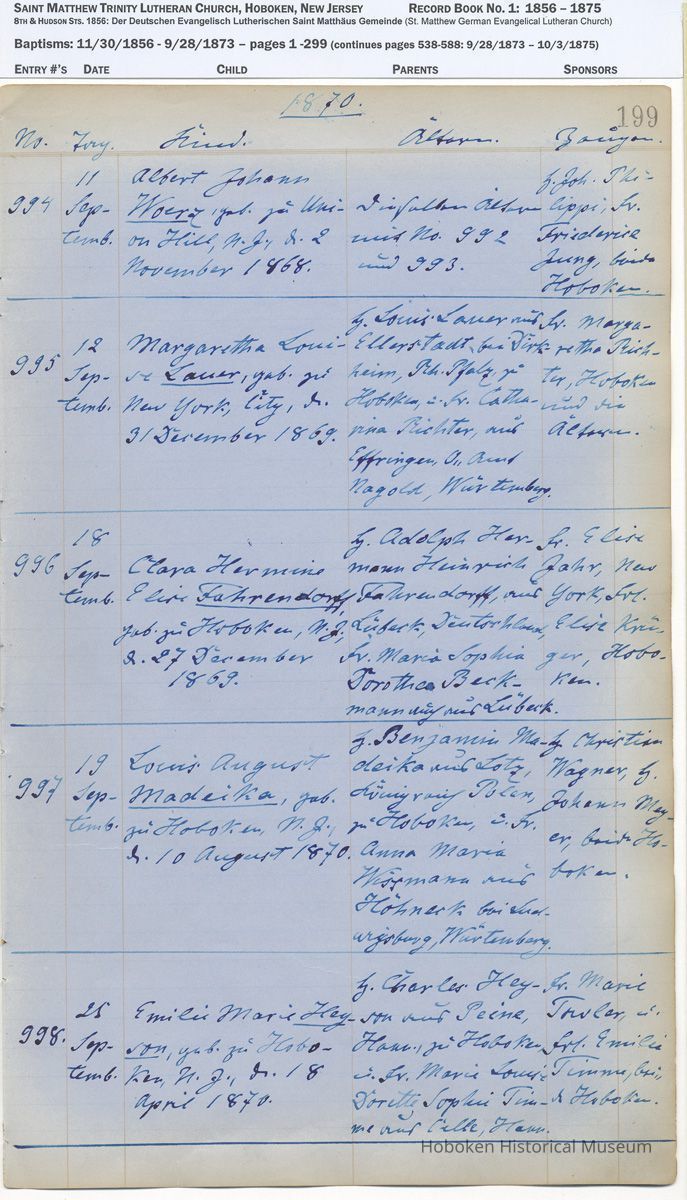 SAINT MATTHEW TRINITY LUTHERAN CHURCH, HOBOKEN, NEW JERSEY RECORD BOOK NO. 1: 1856 – 1875
8TH & HUDSON STS. 1856: Der Deutschen Evangelisch Lutherischen Saint Matthäus Gemeinde (St. Matthew German Evangelical Lutheran Church)
Baptisms: 11/30/1856 - 9/28/1873 – pages 1 -299 (continues pages 538-588: 9/28/1873 – 10/3/1875)
ENTRY #'S DATE CHILD PARENTS SPONSORS
1870.
199
No. Tag. Kind. Ältern. Zeugen.
994
11
Sep-
temb.
Albert Johann
Woerz, geb. zu Uni-
on Hill, N. J., d. 2
November 1868.
Dieselben Ältern
mit No. 992
und 993.
H. Joh. Phi-
lippi, Fr.
Friederica
Jung, beide
Hoboken.
995
12
Sep-
temb.
Margaretha Loui-
se Lauer, geb. zu
New York, City, d.
31 December 1869.
H. Louis Lauer aus
Ellerstadt bei Dürk-
heim, Rh. Pfalz, zu
Hoboken, u. Fr. Catha-
rina Richter, aus
Effringen, O., Amt
Nagold, Würtemberg.
Fr. Marga-
retha Rich-
ter, Hoboken
und die
Ältern.
996
18
Sep-
temb.
Clara Hermine
Elise Fahrendorff,
geb. zu Hoboken, N. J.,
d. 27 December
1869.
H. Adolph Her-
mann Heinrich
Fahrendorff, aus
Lübeck, Deutschland,
Fr. Maria Sophia
Dorothea Beck-
mann auch aus Lübeck.
Fr. Elise
Jahr, New
York, Frl.
Elise Krü-
ger, Hobo-
ken.
997
19
Sep-
temb.
Louis August
Madeika, geb.
zu Hoboken, N. J.,
d. 10 August 1870.
H. Benjamin Ma-
deika aus Lotz,
Königreich Polen,
zu Hoboken, u. Fr.
Anna Maria
Wissmann aus
Höhneck bei Lud-
wigsburg, Würtenberg.
H. Christian
Wagner, H.
Johann May-
er, beide Ho-
boken.
998.
25
Sep-
temb.
Emilie Marie Hey-
son, geb. zu Hobo-
ken, N. J., d. 18
April 1870.
H. Charles Hey-
son aus Peine,
Hann., zu Hoboken
u. Fr. Marie Louise
Dorette Sophie Tim-
me aus Celle, Hann.
Fr. Marie
Towler, u.
Frl. Emilie
Timme, bei-
de Hoboken.
Hoboken Historical Museum